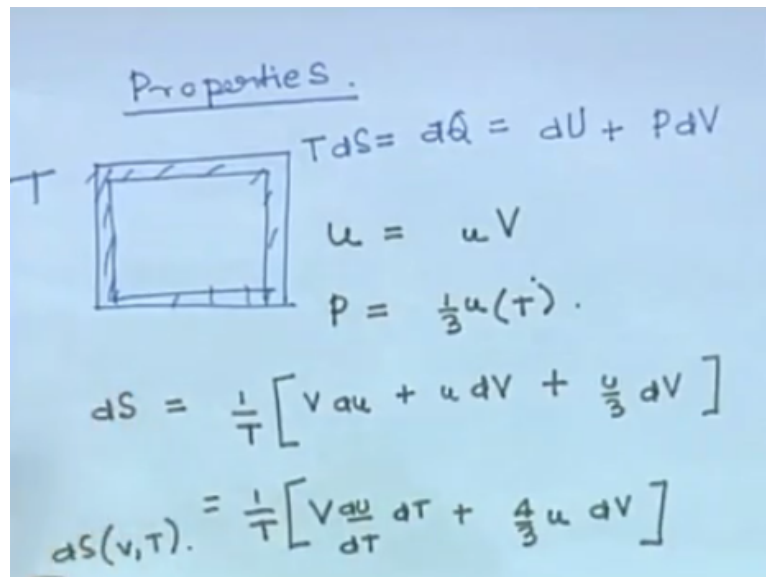 Properties.
T TdS = đQ = dU + PdV
u = uV
P = 1/3 u(T).
dS = 1/T [V du + u dV + u/3 dV]
dS(V,T). = 1/T [V du/dT dT + 4/3 u dV]